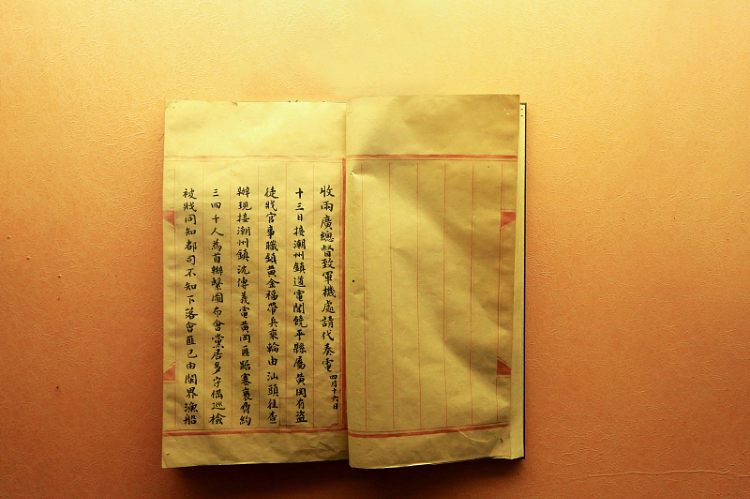 收兩廣總督致軍機處請代奏電 四月十六日
十三日接潮州鎮道電開饒平縣屬黃岡有盜
徒戕官事職鎮黃金福帶兵乘輪由汕頭往查
辦現接潮州鎮沈傳義電黃岡匪踞寨褒齊約
三四千人為首聯繫圖布會黨居多字偽巡檢
被戕同知都司不知下落會匪已由閩界漁船